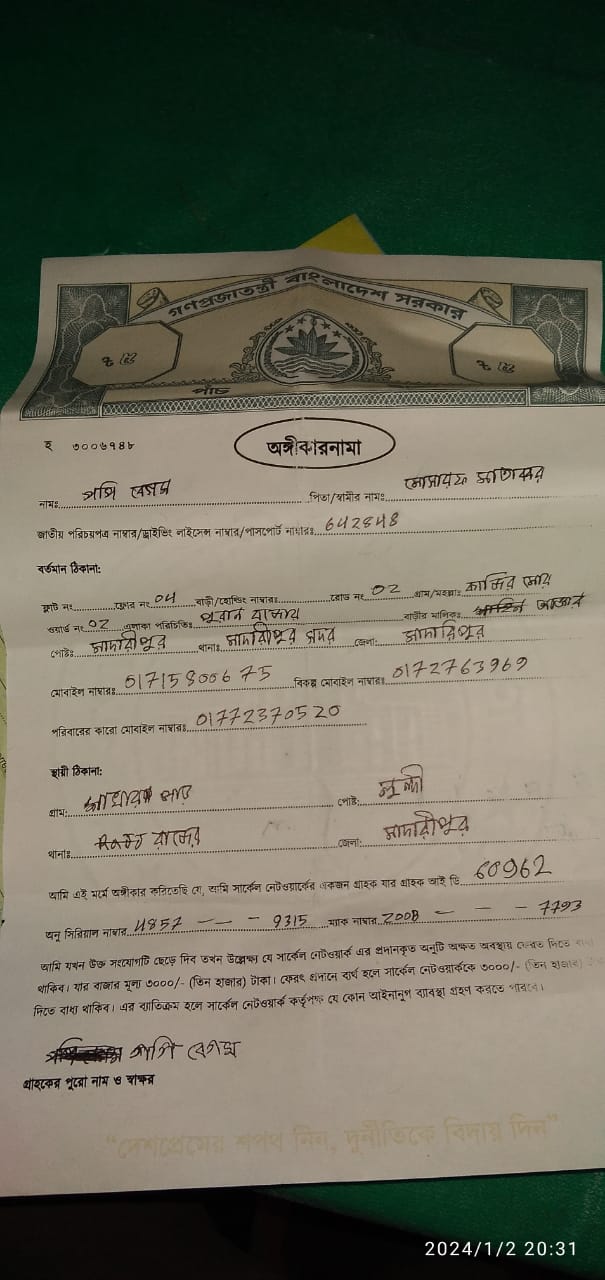 গণপ্রজাতন্ত্রী বাংলাদেশ সরকার
পাঁচ
হ ৩০০৬৭৪৮
অঙ্গীকারনামা
নামঃ বেগম পিতা/স্বামীর নামঃ
জাতীয় পরিচয়পত্র নাম্বার/ড্রাইভিং লাইসেন্স নাম্বার/পাসপোর্ট নাম্বারঃ 642848
বর্তমান ঠিকানা:
ফ্লাট নং ফ্লোর নং 04 বাড়ী/হোল্ডিং নাম্বারঃ রোড নং 02 গ্রাম/মহল্লাঃ কাজির
ওয়ার্ড নং 02 এলাকা পরিচিতিঃ পুরান বাজার বাড়ীর মালিকঃ
পোষ্টঃ মাদারীপুর থানাঃ মাদারীপুর সদর জেলা: মাদারিপুর
মোবাইল নাম্বারঃ 01715800675 বিকল্প মোবাইল নাম্বারঃ 0172763969
পরিবারের কারো মোবাইল নাম্বারঃ 01772370520
স্থায়ী ঠিকানা:
গ্রাম: পোষ্ট:
থানাঃ জেলা: মাদারীপুর
আমি এই মর্মে অঙ্গীকার করিতেছি যে, আমি সার্কেল নেটওয়ার্কের একজন গ্রাহক যার গ্রাহক আই ডি 60962
অনু সিরিয়াল নাম্বার 4857 - - - 9315 ম্যাক নাম্বার 200B - - - 7793
আমি যখন উক্ত সংযোগটি ছেড়ে দিব তখন উল্লেক্ষ্য যে সার্কেল নেটওয়ার্ক এর প্রদানকৃত অনুটি অক্ষত অবস্থায় ফেরত দিতে বাধ্য
থাকিব। যার বাজার মূল্য ৩০০০/- (তিন হাজার) টাকা। ফেরৎ প্রদানে ব্যর্থ হলে সার্কেল নেটওয়ার্ককে ৩০০০/- (তিন হাজার)
দিতে বাধ্য থাকিব। এর ব্যতিক্রম হলে সার্কেল নেটওয়ার্ক কর্তৃপক্ষ যে কোন আইনানুগ ব্যবস্থা গ্রহণ করতে পারবে।
বেগম
গ্রাহকের পুরো নাম ও স্বাক্ষর
“দেশপ্রেমের শপথ নিন, দুর্নীতিকে বিদায় দিন”
2024/1/2 20:31